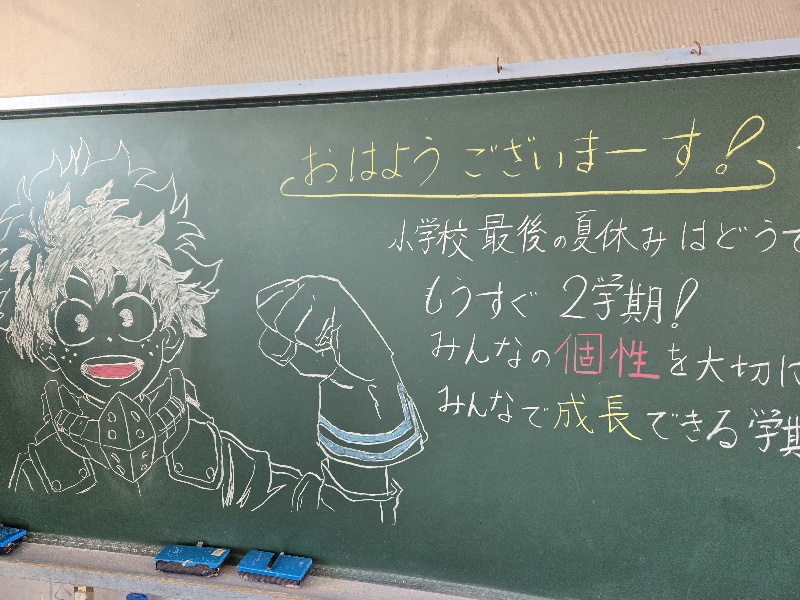 おはようございまーす!
小学校最後の夏休みはどうで
もうすぐ 2学期!
みんなの個性を大切に
みんなで成長できる学期